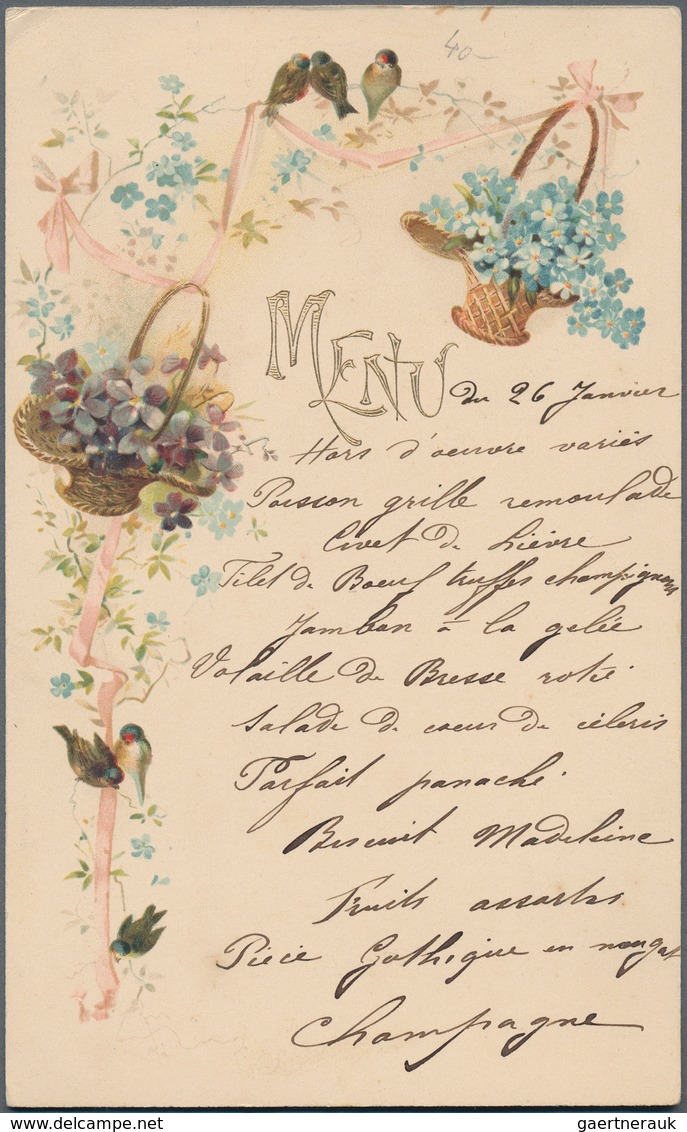 40-
MENU
du 26 Janvier
Hors d'oeuvre variés
Poisson grille remoulade
Civet de Lièvre
Filet de Boeuf truffes champignons
Jambon à la gelée
Volaille de Bresse rotie
Salade de coeur de céleris
Parfait panaché
Biscuit Madeleine
Fruits assortis
Pièce Gothique en nougat
Champagne
gaertnerauk
delcampe.net